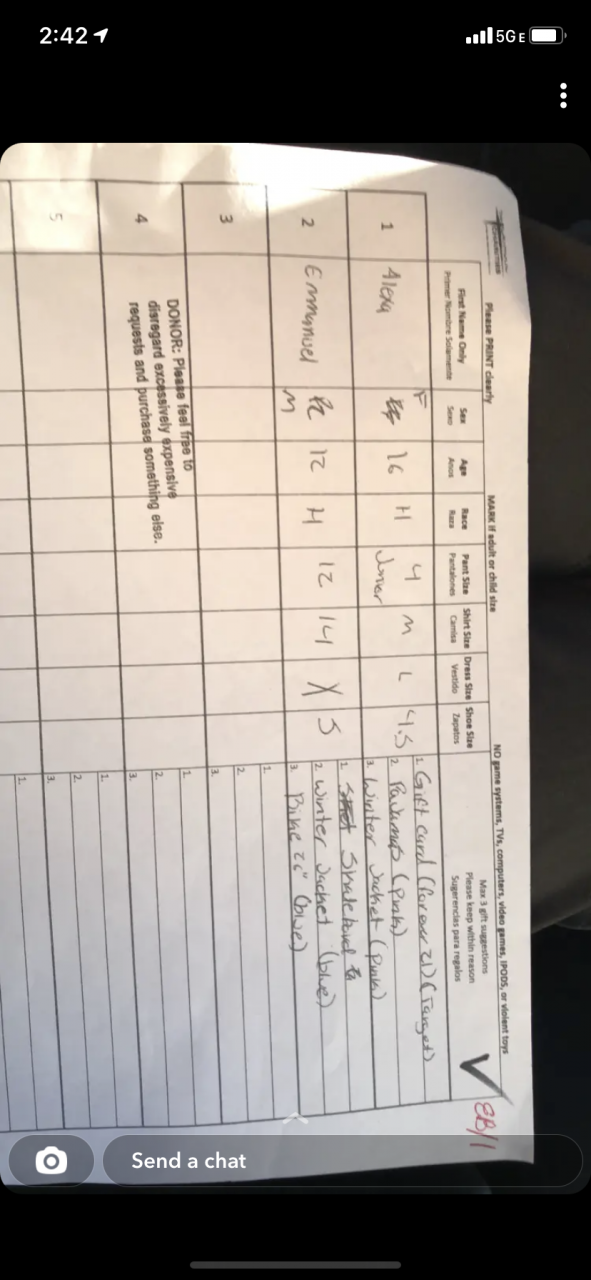 2:42
5GE
Please PRINT clearly
MARK if adult or child size
NO game systems, TVs, computers, video games, IPODS, or violent toys
Max 3 gift suggestions
Please keep within reason
Sugerencias para regalos
First Name Only
Primer Nombre Solamente
Sex
Sexo
Age
Anos
Race
Raza
Pant Size
Pantalones
Shirt Size
Camisa
Dress Size
Vestido
Shoe Size
Zapatos
EB/1
1 Alexa F 16 H 4 Junior M L 4.5
1. Gift card (Forever 21) (Target)
2. Pajamas (pink)
3. Winter Jacket (pink)
2 Emmanuel M 12 H 12 14 X 5
1. Skatebord
2. Winter Jacket (blue)
3. Bike 26" (blue)
3
1.
2.
3.
4
1.
2.
3.
5
1.
2.
3.
1.
DONOR: Please feel free to
disregard excessively expensive
requests and purchase something else.
Send a chat